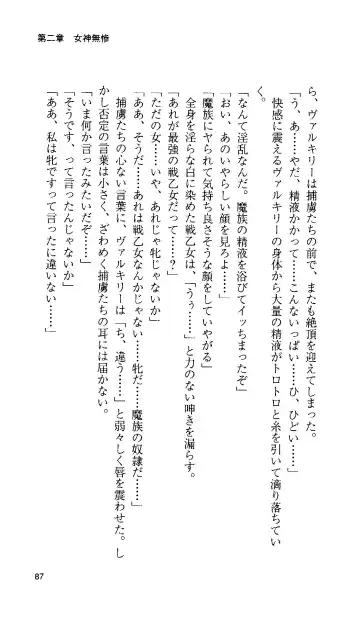 第二章　女神無惨
ら、ヴァルキリーは捕虜たちの前で、またも絶頂を迎えてしまった。
「う、あ……やだ、精液かかって……こんないっぱい……ひ、ひどい……」
快感に震えるヴァルキリーの身体から大量の精液がトロトロと糸を引いて滴り落ちてい
く。
「なんて淫乱なんだ。魔族の精液を浴びてイッちまったぞ」
「おい、あのいやらしい顔を見ろよ……」
「魔族にヤられて気持ち良さそうな顔をしていやがる」
全身を淫らな白に染めた戦乙女は、「うぅ……」と力のない呻きを漏らす。
「あれが最強の戦乙女だって……？」
「ただの女……いや、あれじゃ牝じゃないか」
「ああ、そうだ……あれは戦乙女なんかじゃない……牝だ……魔族の奴隷だ……」
捕虜たちの心ない言葉に、ヴァルキリーは「ち、違う……」と弱々しく唇を震わせた。し
かし否定の言葉は小さく、ざわめく捕虜たちの耳には届かない。
「いま何か言ったみたいだぞ……」
「そうです、って言ったんじゃないか」
「ああ、私は牝ですって言ったに違いない……」
87